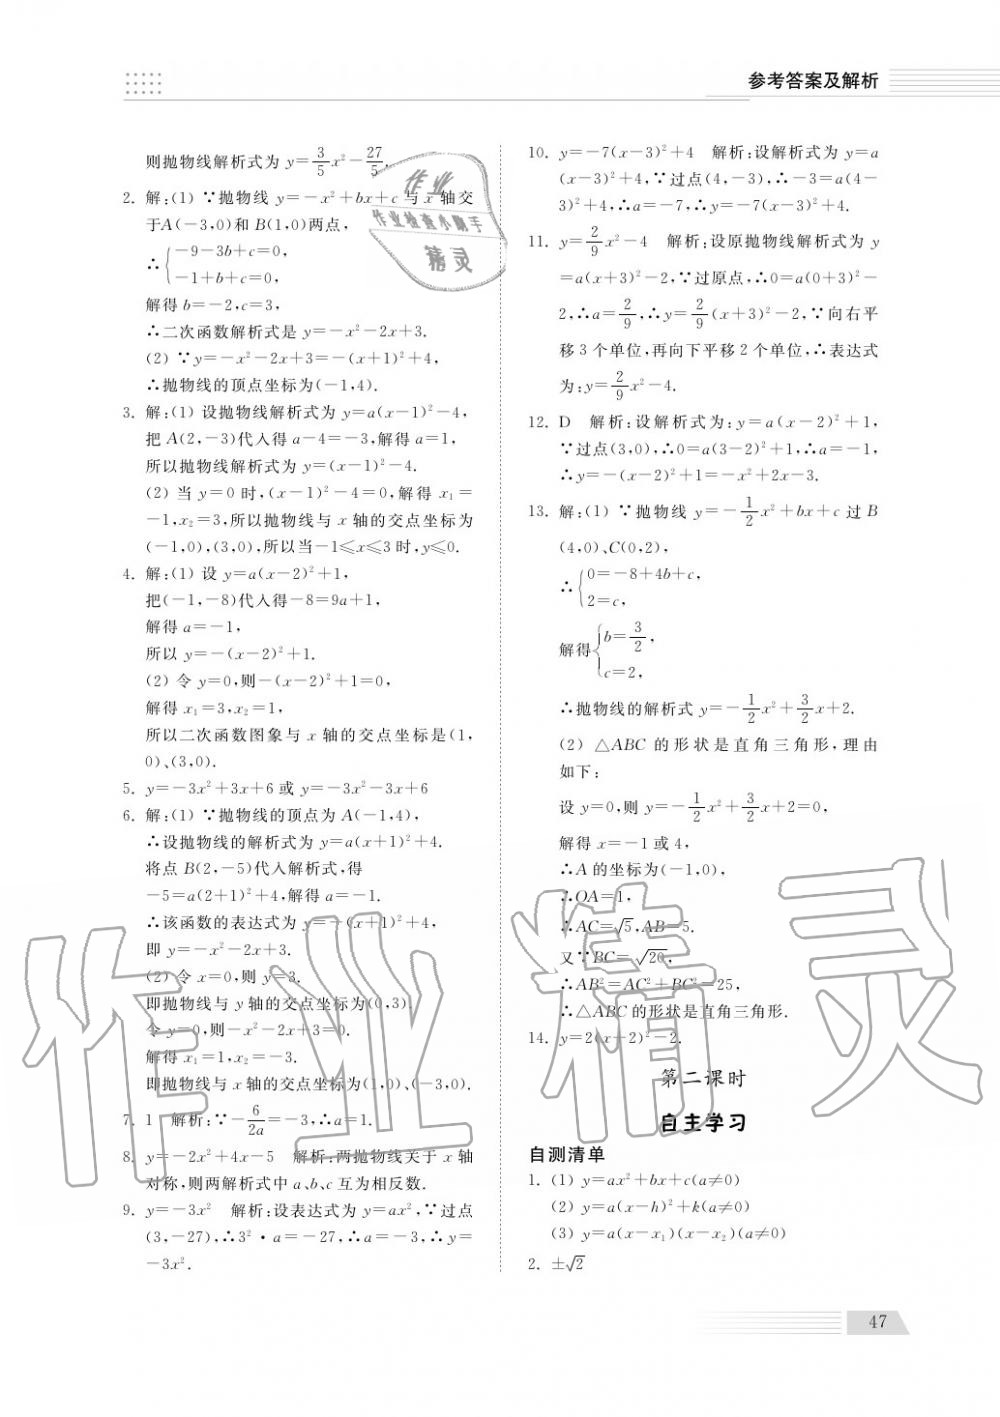 参考答案及解析
则抛物线解析式为 y=3/5x²-27/5.
2. 解:(1) ∵抛物线 y=-x²+bx+c 与 x 轴交
于A(-3,0)和 B(1,0)两点,
∴{-9-3b+c=0,
-1+b+c=0,
解得 b=-2,c=3,
∴二次函数解析式是 y=-x²-2x+3.
(2) ∵y=-x²-2x+3=-(x+1)²+4,
∴抛物线的顶点坐标为(-1,4).
3. 解:(1) 设抛物线解析式为 y=a(x-1)²-4,
把 A(2,-3)代入得 a-4=-3,解得 a=1,
所以抛物线解析式为 y=(x-1)²-4.
(2) 当 y=0 时,(x-1)²-4=0,解得 x₁=
-1,x₂=3,所以抛物线与 x 轴的交点坐标为
(-1,0),(3,0),所以当-1≤x≤3 时,y≤0.
4. 解:(1) 设 y=a(x-2)²+1,
把(-1,-8)代入得-8=9a+1,
解得 a=-1,
所以 y=-(x-2)²+1.
(2) 令 y=0,则-(x-2)²+1=0,
解得 x₁=3,x₂=1,
所以二次函数图象与 x 轴的交点坐标是(1,
0)、(3,0).
5. y=-3x²+3x+6 或 y=-3x²-3x+6
6. 解:(1) ∵抛物线的顶点为 A(-1,4),
∴设抛物线的解析式为 y=a(x+1)²+4.
将点 B(2,-5)代入解析式,得
-5=a(2+1)²+4,解得 a=-1.
∴该函数的表达式为 y=-(x+1)²+4,
即 y=-x²-2x+3.
(2) 令 x=0,则 y=3.
即抛物线与 y 轴的交点坐标为(0,3).
令 y=0,则-x²-2x+3=0.
解得 x₁=1,x₂=-3.
即抛物线与 x 轴的交点坐标为(1,0)、(-3,0).
7. 1 解析:∵-6/2a=-3,∴a=1.
8. y=-2x²+4x-5 解析:两抛物线关于 x 轴
对称,则两解析式中 a、b、c 互为相反数.
9. y=-3x² 解析:设表达式为 y=ax²,∵过点
(3,-27),∴3²·a=-27,∴a=-3,∴y=
-3x².
10. y=-7(x-3)²+4 解析:设解析式为 y=a
(x-3)²+4,∵过点(4,-3),∴-3=a(4-
3)²+4,∴a=-7,∴y=-7(x-3)²+4.
11. y=2/9x²-4 解析:设原抛物线解析式为 y
=a(x+3)²-2,∵过原点,∴0=a(0+3)²-
2,∴a=2/9,∴y=2/9(x+3)²-2,∵向右平
移 3 个单位,再向下平移 2 个单位,∴表达式
为:y=2/9x²-4.
12. D 解析:设解析式为:y=a(x-2)²+1,
∵过点(3,0),∴0=a(3-2)²+1,∴a=-1,
∴y=-(x-2)²+1=-x²+2x-3.
13. 解:(1) ∵抛物线 y=-1/2x²+bx+c 过 B
(4,0)、C(0,2),
∴{0=-8+4b+c,
2=c,
解得{b=3/2,
c=2,
∴抛物线的解析式 y=-1/2x²+3/2x+2.
(2) △ABC 的形状是直角三角形,理由
如下:
设 y=0,则 y=-1/2x²+3/2x+2=0,
解得 x=-1 或 4,
∴A 的坐标为(-1,0),
∴OA=1,
∴AC=√5,AB=5.
又∵BC=√20,
∴AB²=AC²+BC²=25,
∴△ABC 的形状是直角三角形.
14. y=2(x+2)²-2.
第二课时
自主学习
自测清单
1. (1) y=ax²+bx+c(a≠0)
(2) y=a(x-h)²+k(a≠0)
(3) y=a(x-x₁)(x-x₂)(a≠0)
2. ±√2
47
作业
作业检查小助手
精灵
作业精灵